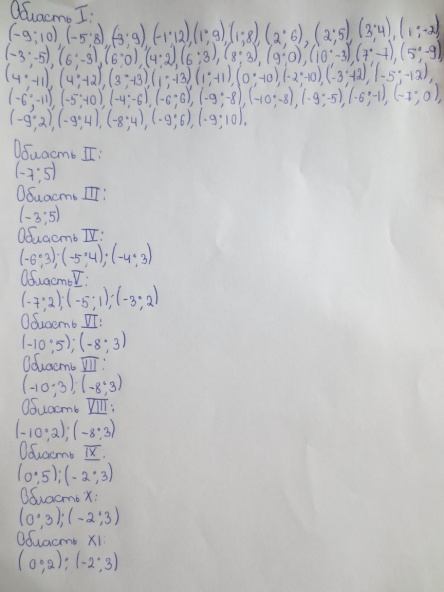 Область I:
(-9;10), (-5;8), (-3;9), (-1;12) (1;9), (1;8) (2;6), (2;5), (3;4), (1;-2)
(-3;-5), (6;-3), (6;0), (4;2), (6;3), (8;3), (9;0), (10;-3), (7;-7), (5;-9),
(4;-11), (4;-12), (3;-13) (1;-13), (1;-11) (0;-10) (-2;-10), (-3;-12), (-5;-12),
(-6;-11), (-5;-10), (-4;-6), (-6;6), (-9;-8), (-10;-8), (-9;-5), (-6;-1), (-7;0),
(-9;2), (-9;4), (-8;4), (-9;6), (-9;10).
Область II:
(-7;5)
Область III:
(-3;5)
Область IV:
(-6;3); (-5;4); (-4;3)
Область V:
(-7;2); (-5;1); (-3;2)
Область VI:
(-10;5); (-8;3)
Область VII:
(-10;3); (-8;3)
Область VIII:
(-10;2); (-8;3)
Область IX.
(0;5); (-2;3)
Область X:
(0;3); (-2;3)
Область XI:
(0;2); (-2;3)